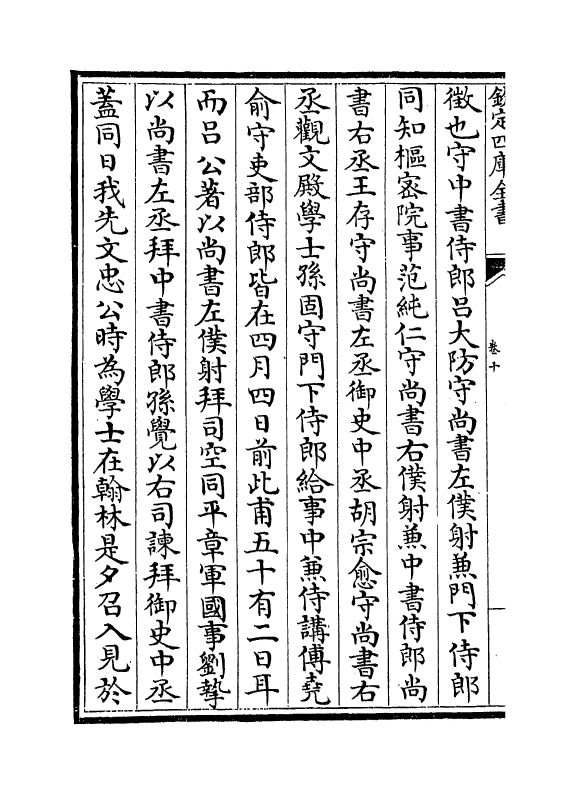 欽定四庫全書
卷十
徵也守中書侍郎吕大防守尚書左僕射蒹門下侍郎
同知樞宻院事范純仁守尚書右僕射蒹中書侍郎尚
書右丞王存守尚書左丞御史中丞胡宗愈守尚書右
丞觀文殿學士孫固守門下侍郎給事中兼侍講傅堯
俞守吏部侍郎皆在四月四日前此甫五十有二日耳
而吕公著以尚書左僕射拜司空同平章軍國事劉摯
以尚書左丞拜中書侍郎孫覺以右司諫拜御史中丞
蓋同日我先文忠公時為學士在翰林是夕召入見於